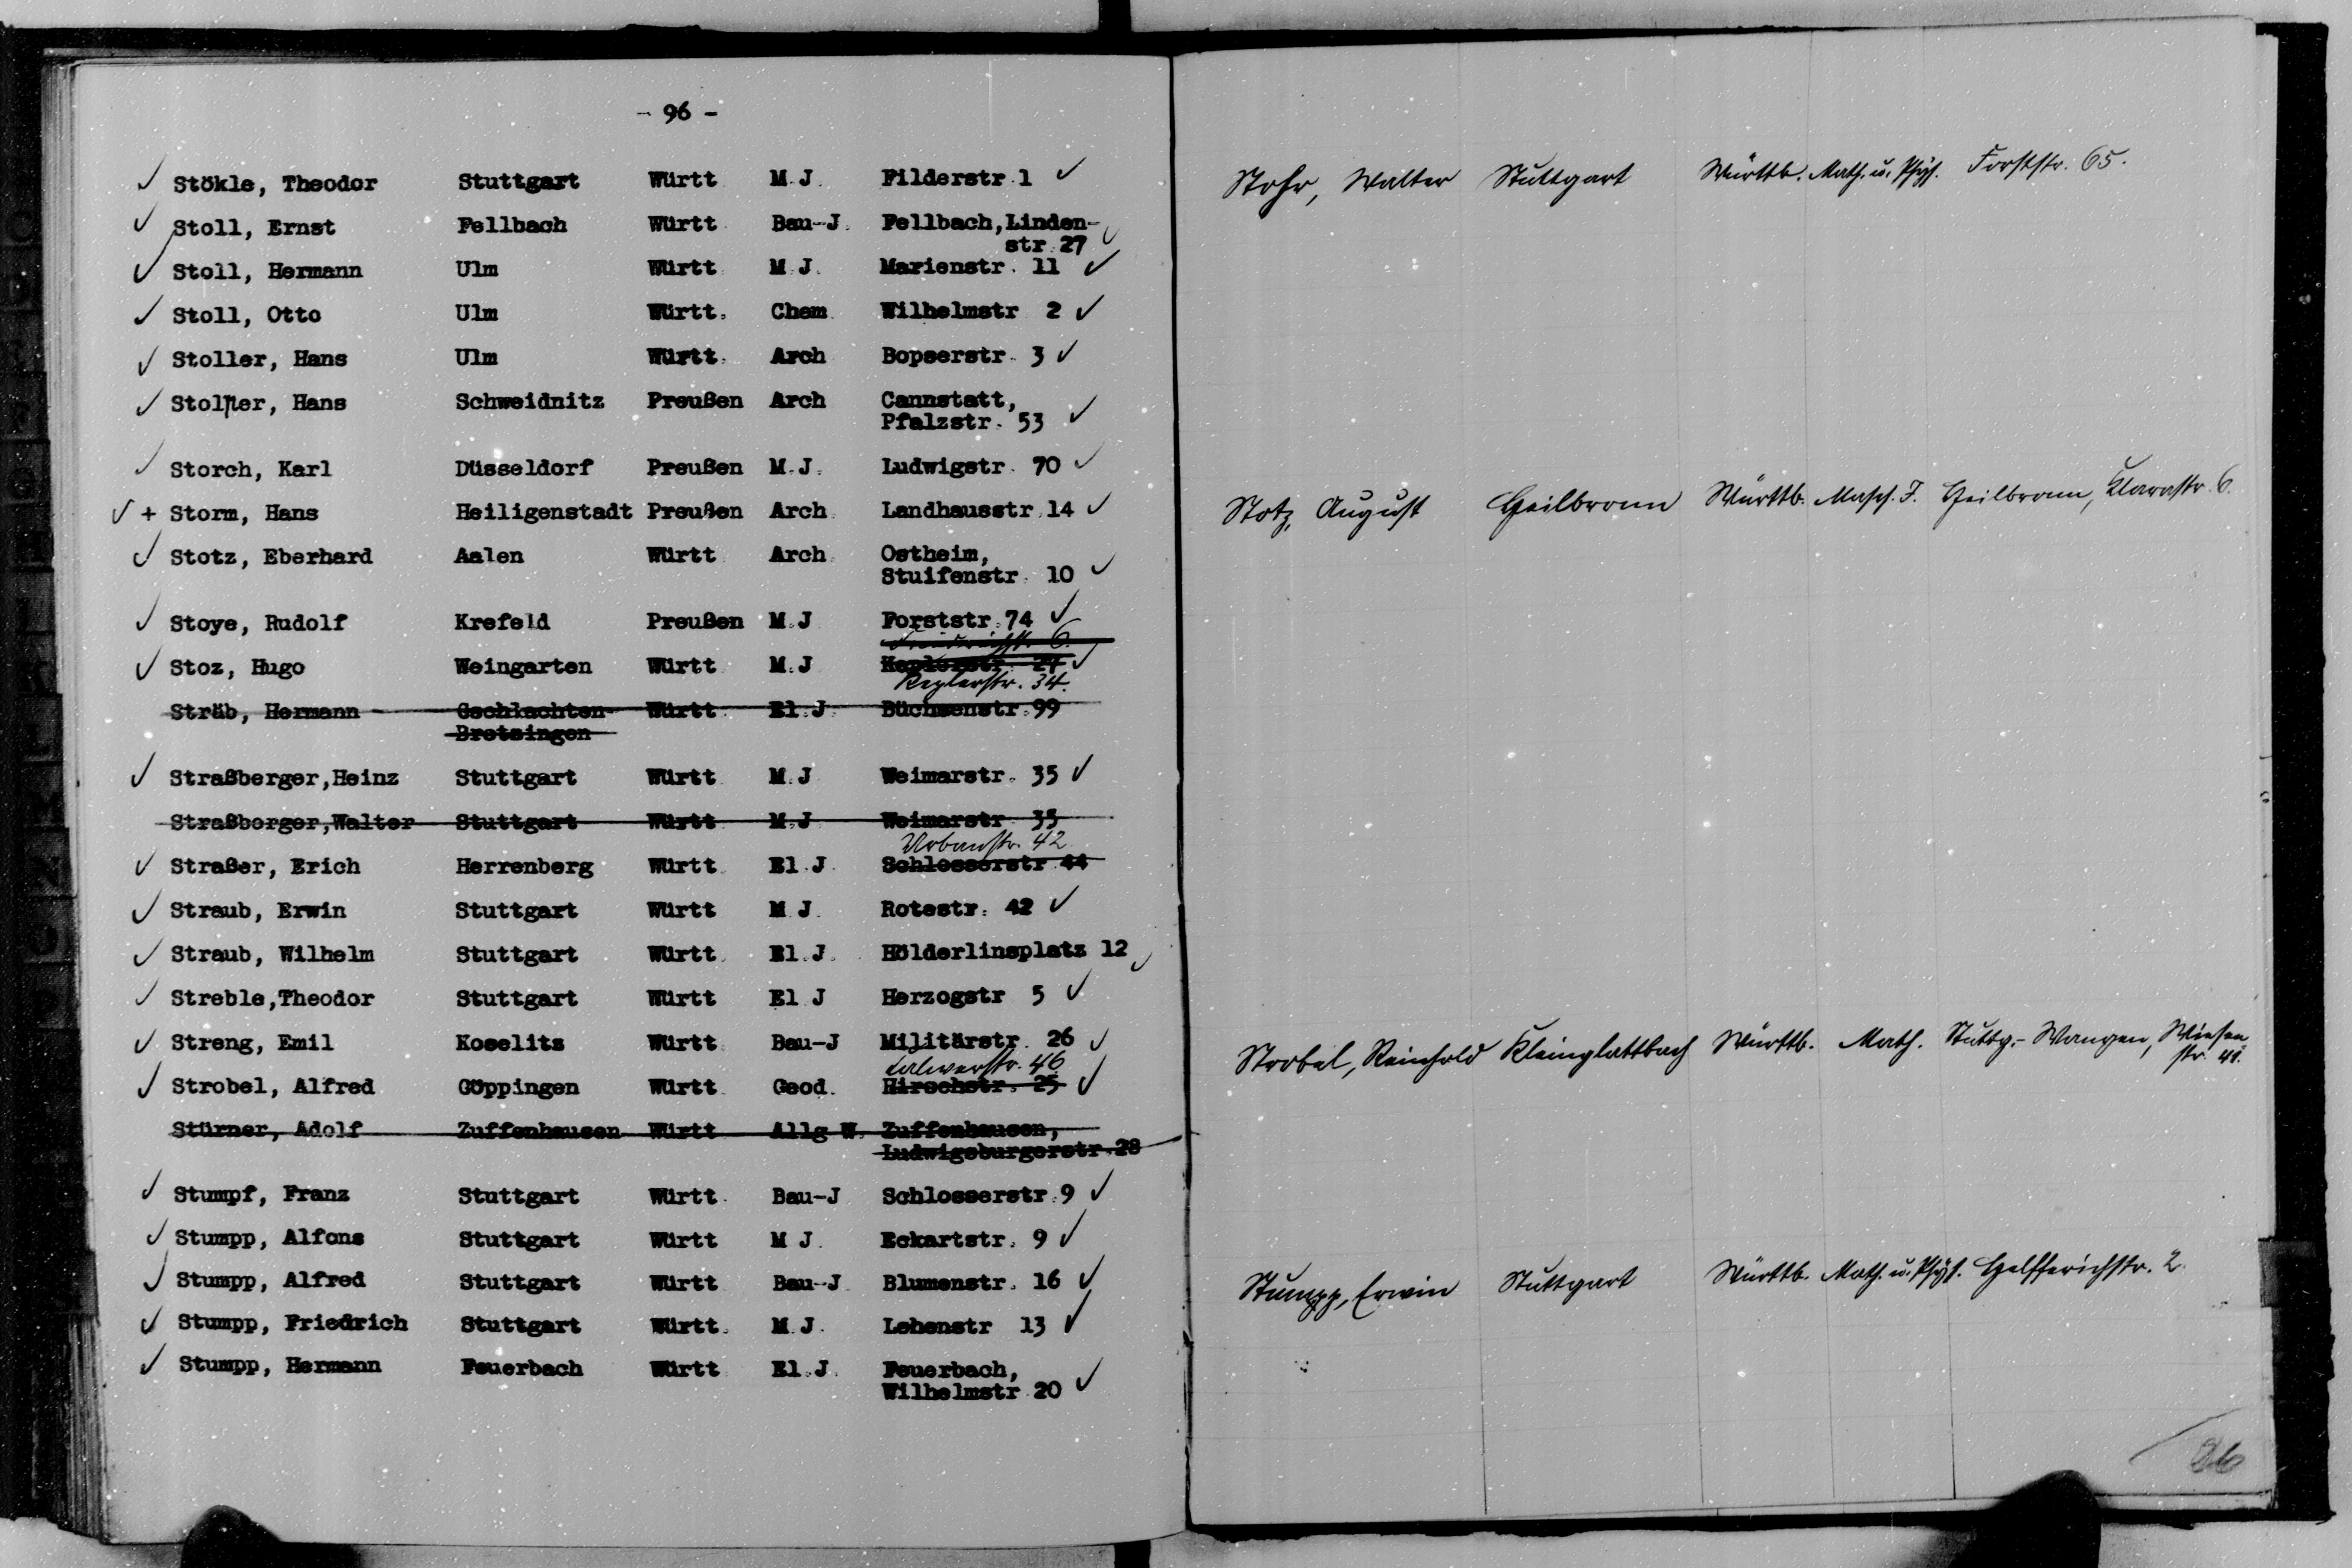 - 96 -
Stökle, Theodor Stuttgart Württ. M.J. Filderstr. 1
Stoll, Ernst Fellbach Württ. Bau-J. Fellbach, Linden-
str. 27
Stoll, Hermann Ulm Württ. M.J. Marienstr. 11
Stoll, Otto Ulm Württ. Chem. Wilhelmstr. 2
Stoller, Hans Ulm Württ. Arch. Bopserstr. 3
Stolper, Hans Schweidnitz Preußen Arch. Cannstatt,
Pfalzstr. 53
Storch, Karl Düsseldorf Preußen M.J. Ludwigstr. 70
+ Storm, Hans Heiligenstadt Preußen Arch. Landhausstr. 14
Stotz, Eberhard Aalen Württ. Arch. Ostheim,
Stuifenstr. 10
Stoye, Rudolf Krefeld Preußen M.J. Forststr. 74
Friedrichstr. 6.
Stoz, Hugo Weingarten Württ. M.J. Keplerstr. 24
Keplerstr. 34.
Sträb, Hermann Gschlachten- Württ. El.J. Büchsenstr. 99
Bretzingen
Straßberger, Heinz Stuttgart Württ. M.J. Weimarstr. 35
Straßberger, Walter Stuttgart Württ. M.J. Weimarstr. 35
Urbanstr. 42
Straßer, Erich Herrenberg Württ. El.J. Schlosserstr. 44
Straub, Erwin Stuttgart Württ. M.J. Rotestr. 42
Straub, Wilhelm Stuttgart Württ. El.J. Hölderlinsplatz 12
Streble, Theodor Stuttgart Württ. El.J. Herzogstr. 5
Streng, Emil Koselitz Württ. Bau-J. Militärstr. 26
Calwerstr. 46
Strobel, Alfred Göppingen Württ. Geod. Hirschstr. 25
Stürner, Adolf Zuffenhausen Württ. Allg W. Zuffenhausen,
Ludwigsburgerstr. 28
Stumpf, Franz Stuttgart Württ. Bau-J Schlosserstr. 9
Stumpp, Alfons Stuttgart Württ. M.J. Eckartstr. 9
Stumpp, Alfred Stuttgart Württ. Bau-J. Blumenstr. 16
Stumpp, Friedrich Stuttgart Württ. M.J. Lehenstr. 13
Stumpp, Hermann Feuerbach Württ. El.J. Feuerbach,
Wilhelmstr. 20
Stohr, Walter Stuttgart Württb. Math. u. Phys. Forststr. 65.
Stotz, August Heilbronn Württb. Masch. J. Heilbronn, Klarastr. 6.
Strobel, Reinhold Kleinglattbach Württb. Math. Stuttg.-Wangen, Wiesen
str. 41.
Stumpp, Erwin Stuttgart Württb. Math. u. Phys. Helfferichstr. 2.